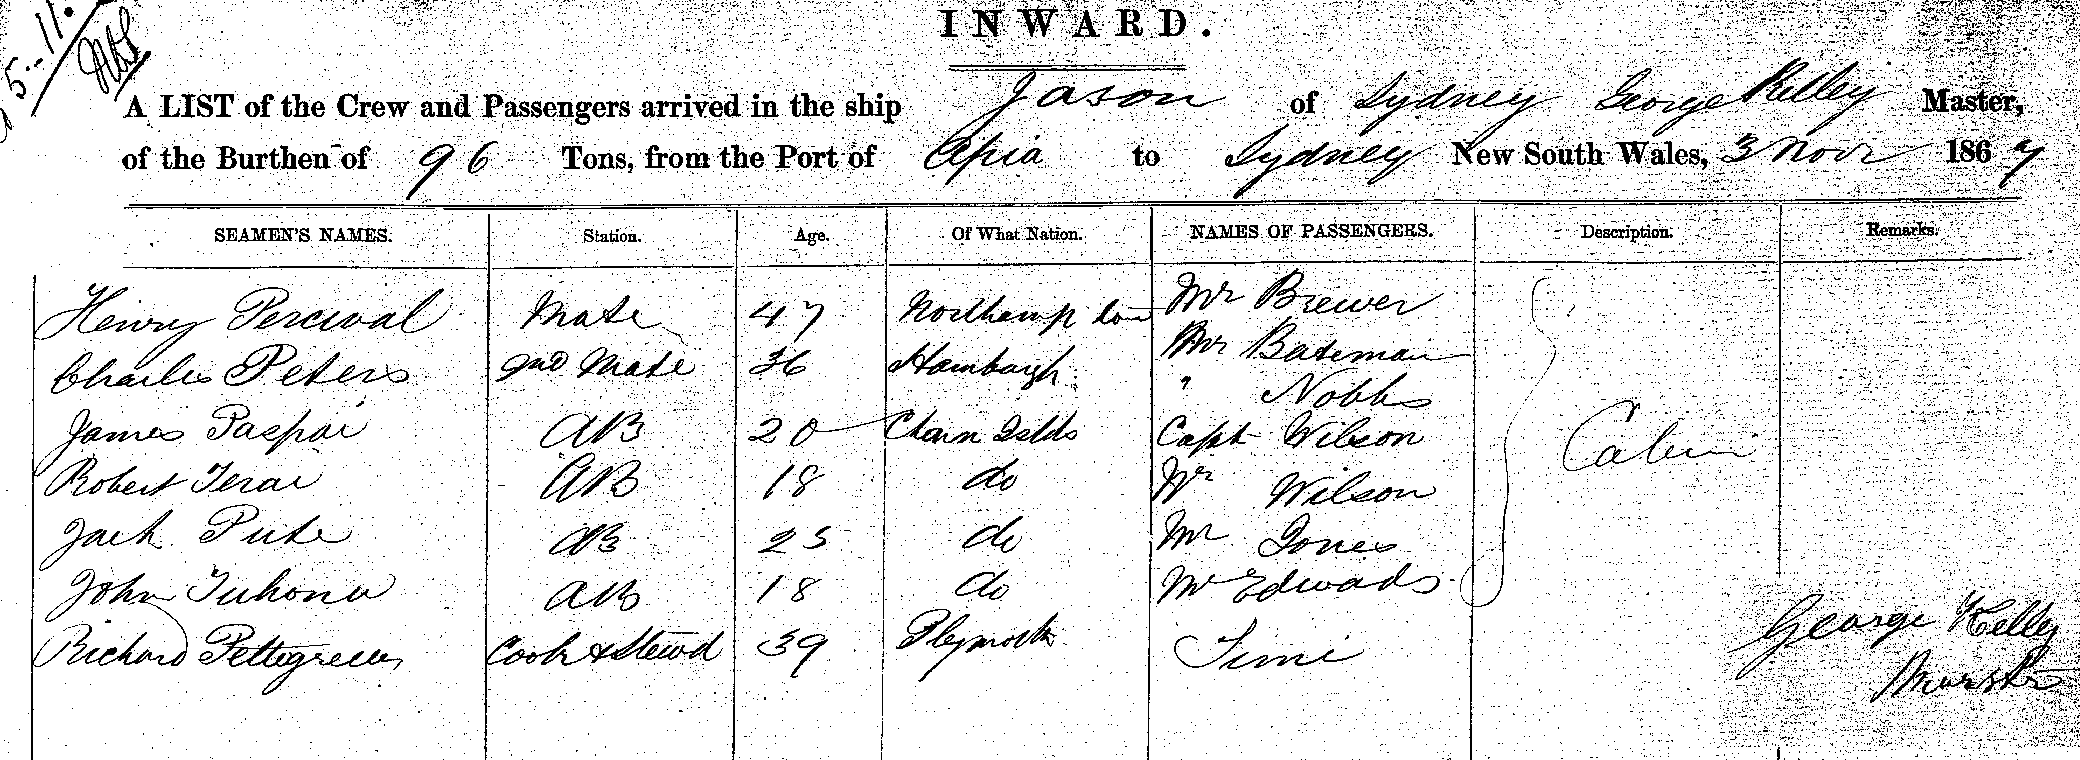 5-11.
INWARD.
A LIST of the Crew and Passengers arrived in the ship Jason of Sydney George Kelley Master,
of the Burthen of 96 Tons, from the Port of Apia to Sydney New South Wales, 3 Novr 1867
SEAMEN'S NAMES. Station. Age. Of What Nation. NAMES OF PASSENGERS. Description. Remarks.
Henry Percival Mate 47 Northampton Mr Brewer
Charles Peters 2nd Mate 36 Hamburgh Mr Bateman
" Nobbs
James Paspai AB 20 Chain Islds Capt Wilson Cabin
Robert Terai AB 18 do Mr Wilson
Jack Pute AB 25 do Mr Jones
John Tuhona AB 18 do Mr Edwads
Richard Pettegrew Cook & Stewd 39 Plymouth Timi George Kelley
Master